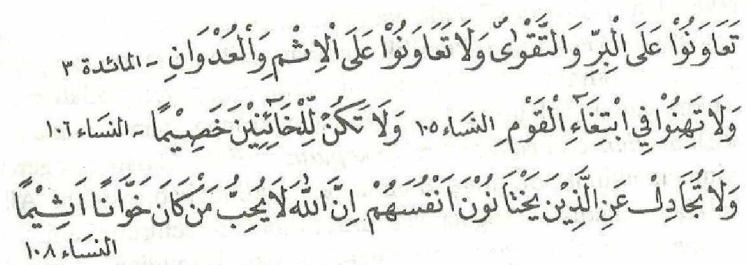 تَعَاوَنُوْا عَلَى الْبِرِّ وَالتَّقْوٰى وَلَا تَعَاوَنُوْا عَلَى الْاِثْمِ وَالْعُدْوَانِ - المائدة ٣
وَلَا تَهِنُوْا فِي ابْتِغَاءِ الْقَوْمِ النسَاء ١٠٥ وَلَا تَكُنْ لِّلْخَآئِنِيْنَ خَصِيْمًا - النسَاء ١٠٦
وَلَا تُجَادِلْ عَنِ الَّذِيْنَ يَخْتَانُوْنَ اَنْفُسَهُمْ اِنَّ اللّٰهَ لَا يُحِبُّ مَنْ كَانَ خَوَّانًا اَثِيْمًا
النسَاء ١٠٨